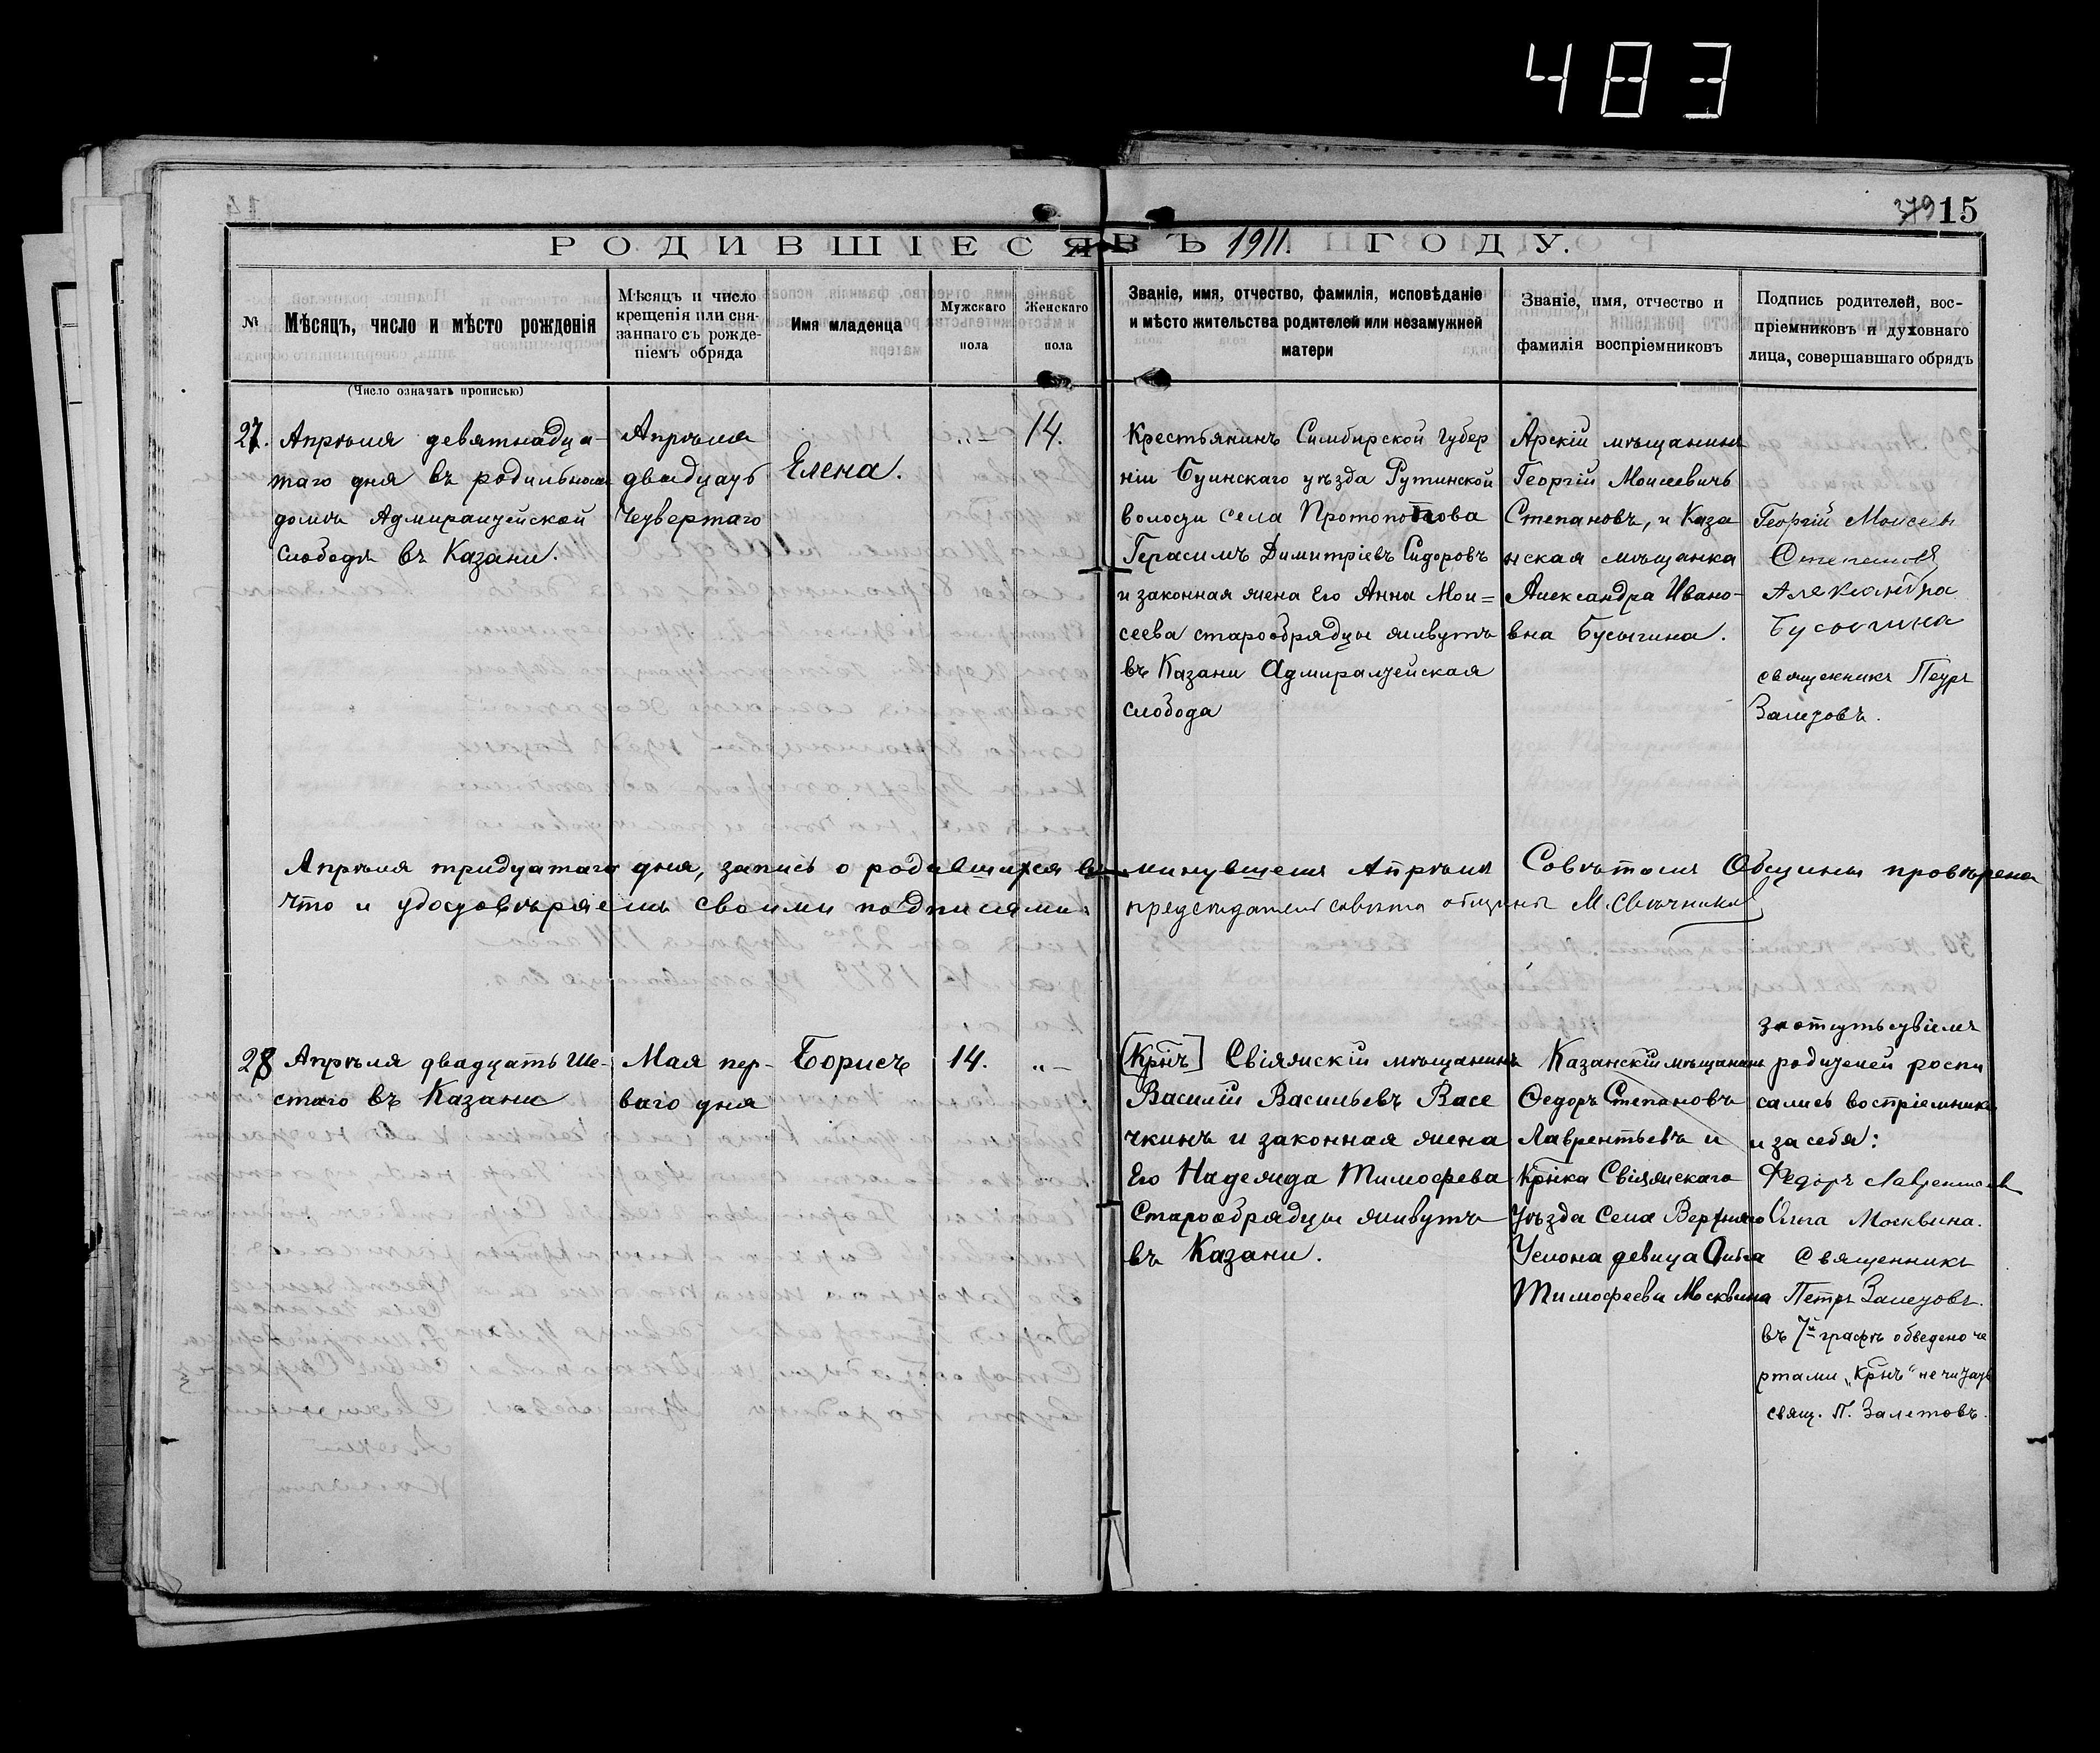 483
379 15
РОДИВШІЕСЯ ВЪ 1911 ГОДУ.
№
Мѣсяцъ, число и мѣсто рожденія
Мѣсяцъ и число
крещенія или свя-
заннаго съ рожде-
ніемъ обряда
Имя младенца
Мужскаго
пола
Женскаго
пола
Званіе, имя, отчество, фамилія, исповѣданіе
и мѣсто жительства родителей или незамужней
матери
Званіе, имя, отчество и
фамилія воспріемниковъ
Подпись родителей, вос-
пріемниковъ и духовнаго
лица, совершавшаго обрядъ
(Число означать прописью)
27.
Апрѣля девятнадца-
таго дня въ родильномъ
домѣ Адмиралтейской
слободѣ въ Казани.
Апрѣля
двадцать
четвертаго
Елена.
„
14.
Крестьянинъ Симбирской губер
ніи Буинскаго уѣзда Рунинской
волости села Протопопова
Герасимъ Димитріевъ Сидоровъ
и законная жена его Анна Мои=
сеева старообрядцы живутъ
въ Казани Адмиралтейская
слобода
Арскій мѣщанинъ
Георгій Моисеевичъ
Степановъ, и Каза
нская мѣщанка
Александра Ивано-
вна Бусыгина.
Георгій Моисеев
Степановъ
Александра
Бусыгина
священникъ Петръ
Залетовъ.
Апрѣля тридцатаго дня, запись о родившихся въ минувшемъ Апрѣлѣ Совѣтомъ Общины провѣрена
что и удостовѣряемъ своими подписями: предсѣдатель совѣта общины М. Свѣчников
28
Апрѣля двадцать ше-
стаго въ Казани
Мая пер-
ваго дня
Борисъ
14.
„ –
[Крнъ] Свіяжскій мѣщанинъ
Василій Васильевъ Васе
чкинъ и законная жена
его Надежда Тимофеева
Старообрядцы живутъ
въ Казани.
Казанскій мѣщанинъ
Федоръ Степановъ
Лаврентьевъ и
Крнка Свіяжскаго
Уѣзда Села Верхняго
Услона девица Ольга
Тимофеева Москвина
за отсутствіемъ
родителей роспи
сались воспріемники
и за себя:
Федоръ Лаврентьев
Ольга Москвина.
Священникъ
Петръ Залетовъ.
въ 7й графѣ обведено че
ртами „Крнъ" не читать
свящ. П. Залетовъ.